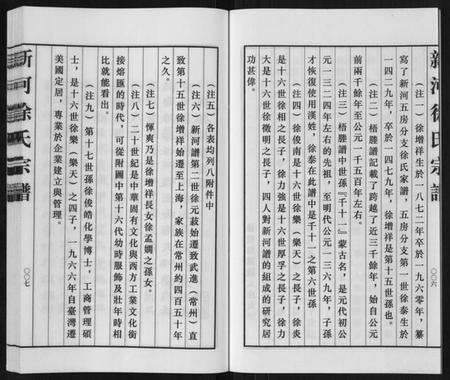 新河徐氏宗譜
〇〇六
(注一) 徐增祥生於一八七二年卒於一九六零年，纂
寫了新河五房分支徐氏家譜。五房分支第一世徐泰生於
一四二九年，卒於一四七九年，徐增祥是第十五世孫也。
(注二) 梧塍譜記載了跨越了近三千餘年，始自公元
前兩千餘年至公元一千五百年左右。
(注三) 梧塍譜中世孫『千十一』蒙古名，是元代初公
元一三二四年左右的先祖，至明代公元一三六九年，子孫
才恢復使用漢姓，徐泰在此譜中是千十一之第六世孫
(注四) 徐俊南是十六世徐樂(樂天)之長子，徐炎
是十六世徐相之長子，徐力強是十六世厚孚之長子，徐力
大是十六世徐微明之長子，四人對新河譜的組成的研究居
功甚偉。
(注五) 各表均列八附件中
(注六) 新河譜第二世徐元菇始遷致武進(常州)直
致第十五世徐增祥始遷至上海，家族在常州約四百五十年
之久。
(注七) 惲爽乃是徐增祥長女徐孟嫺之孫女。
(注八) 二十世紀是中華固有文化與西方工業文化銜
接熔匯的時代，可從附圖中第十六代幼時服飾及壯年時相
比就能看出。
(注九) 第十七世孫徐俊皓化學博士，工商管理碩
士，是十六世徐樂(樂天)之四子，一九六六年自臺灣遷
美國定居，專業於企業建立與管理。
新河徐氏宗譜
〇〇七